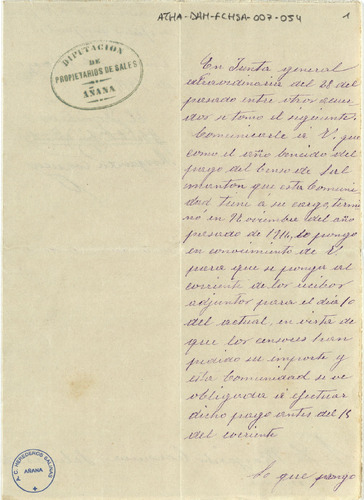 ATHA-DAH-FCHSA-007-054
1
DIPUTACION
DE
PROPIETARIOS DE SALES
AÑANA
En Junta general
extraordinaria del 28 del
pasado entre otros acuer
dos se tomó el siguiente:
Comunicarle á V. que
como el año vencido del
pago del Censo de Sal
mantón que esta Comuni
dad tiene á su cargo, termi
nó en Noviembre del año
pasado de 1916, lo pongo
en conocimiento de V
para que se ponga al
corriente de los recibos
adjuntos para el día 10
del actual, en vista de
que los censores han
pedido su importe y
esta Comunidad se ve
obligada á efectuar
dicho pago antes del 15
del corriente
Lo que pongo
P.C. HEREDEROS SALINAS
AÑANA